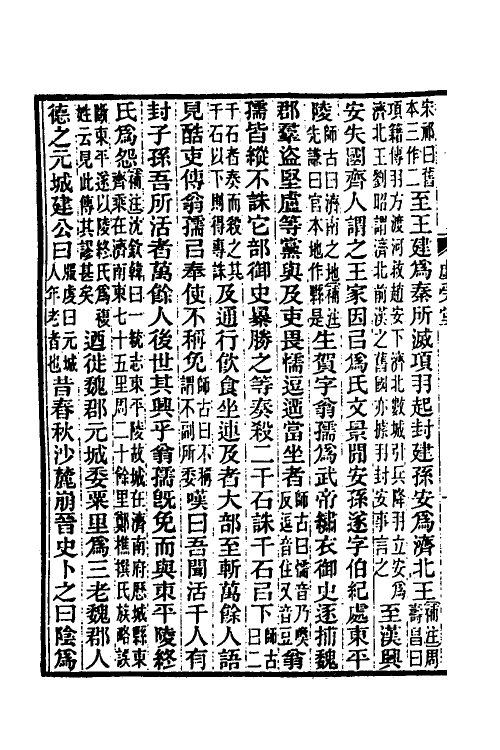 宋祁曰舊本三作二至王建爲秦所滅項羽起封建孫安爲濟北王補注周壽昌曰
項籍傳羽方渡河救趙安下濟北數城引兵降羽立安爲濟北王劉昭謂濟北前漢之舊國亦據羽封安事言之至漢興
安失國齊人謂之王家因㠯爲氏文景閒安孫遂字伯紀處東平
陵師古曰濟南之地補注先謙曰官本地作縣是生賀字翁孺爲武帝繡衣御史逐捕魏
郡羣盜堅盧等黨與及吏畏懦逗遛當坐者師古曰懦音乃喚反逗音住又音豆翁
孺皆縱不誅它部御史暴勝之等奏殺二千石誅千石㠯下師古曰二
千石者奏而殺之其千石以下則得專誅及通行飲食坐連及者大部至斬萬餘人語
見酷吏傳翁孺㠯奉使不稱免師古曰不稱謂不副所委嘆曰吾聞活千人有
封子孫吾所活者萬餘人後世其興乎翁孺旣免而與東平陵終
氏爲怨補注沈欽韓曰一統志東平陵故城在濟南府歷城縣東齊乘在濟南東七十五里周二十餘里鄭樵撰氏族略誤
斷東平遂以陵終氏爲複姓云見此傳其謬甚矣迺徙魏郡元城委粟里爲三老魏郡人
德之元城建公曰服虔曰元城人年老者也昔春秋沙麓崩晉史卜之曰陰爲